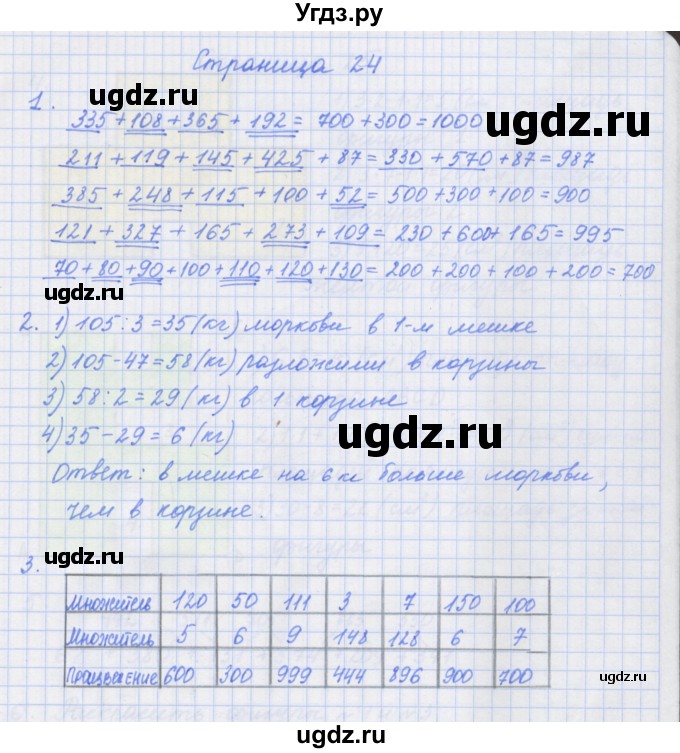 Угдз.ру
Страница 24
1.
335 + 108 + 365 + 192 = 700 + 300 = 1000
211 + 119 + 145 + 425 + 87 = 330 + 570 + 87 = 987
385 + 248 + 115 + 100 + 52 = 500 + 300 + 100 = 900
121 + 327 + 165 + 273 + 109 = 230 + 600 + 165 = 995
70 + 80 + 90 + 100 + 110 + 120 + 130 = 200 + 200 + 100 + 200 = 700
2. 1) 105 : 3 = 35 (кг) моркови в 1-м мешке
2) 105 - 47 = 58 (кг) разложили в корзины
3) 58 : 2 = 29 (кг) в 1 корзине
4) 35 - 29 = 6 (кг)
Ответ: в мешке на 6 кг больше моркови,
чем в корзине.
3.
Множитель 120 50 111 3 7 150 100
Множитель 5 6 9 148 128 6 7
Произведение 600 300 999 444 896 900 700
ugdz.ru
ugdz.ru
ugdz.ru
ugdz.ru
ugdz.ru
ugdz.ru
ugdz.ru
ugdz.ru
Угдз.ру